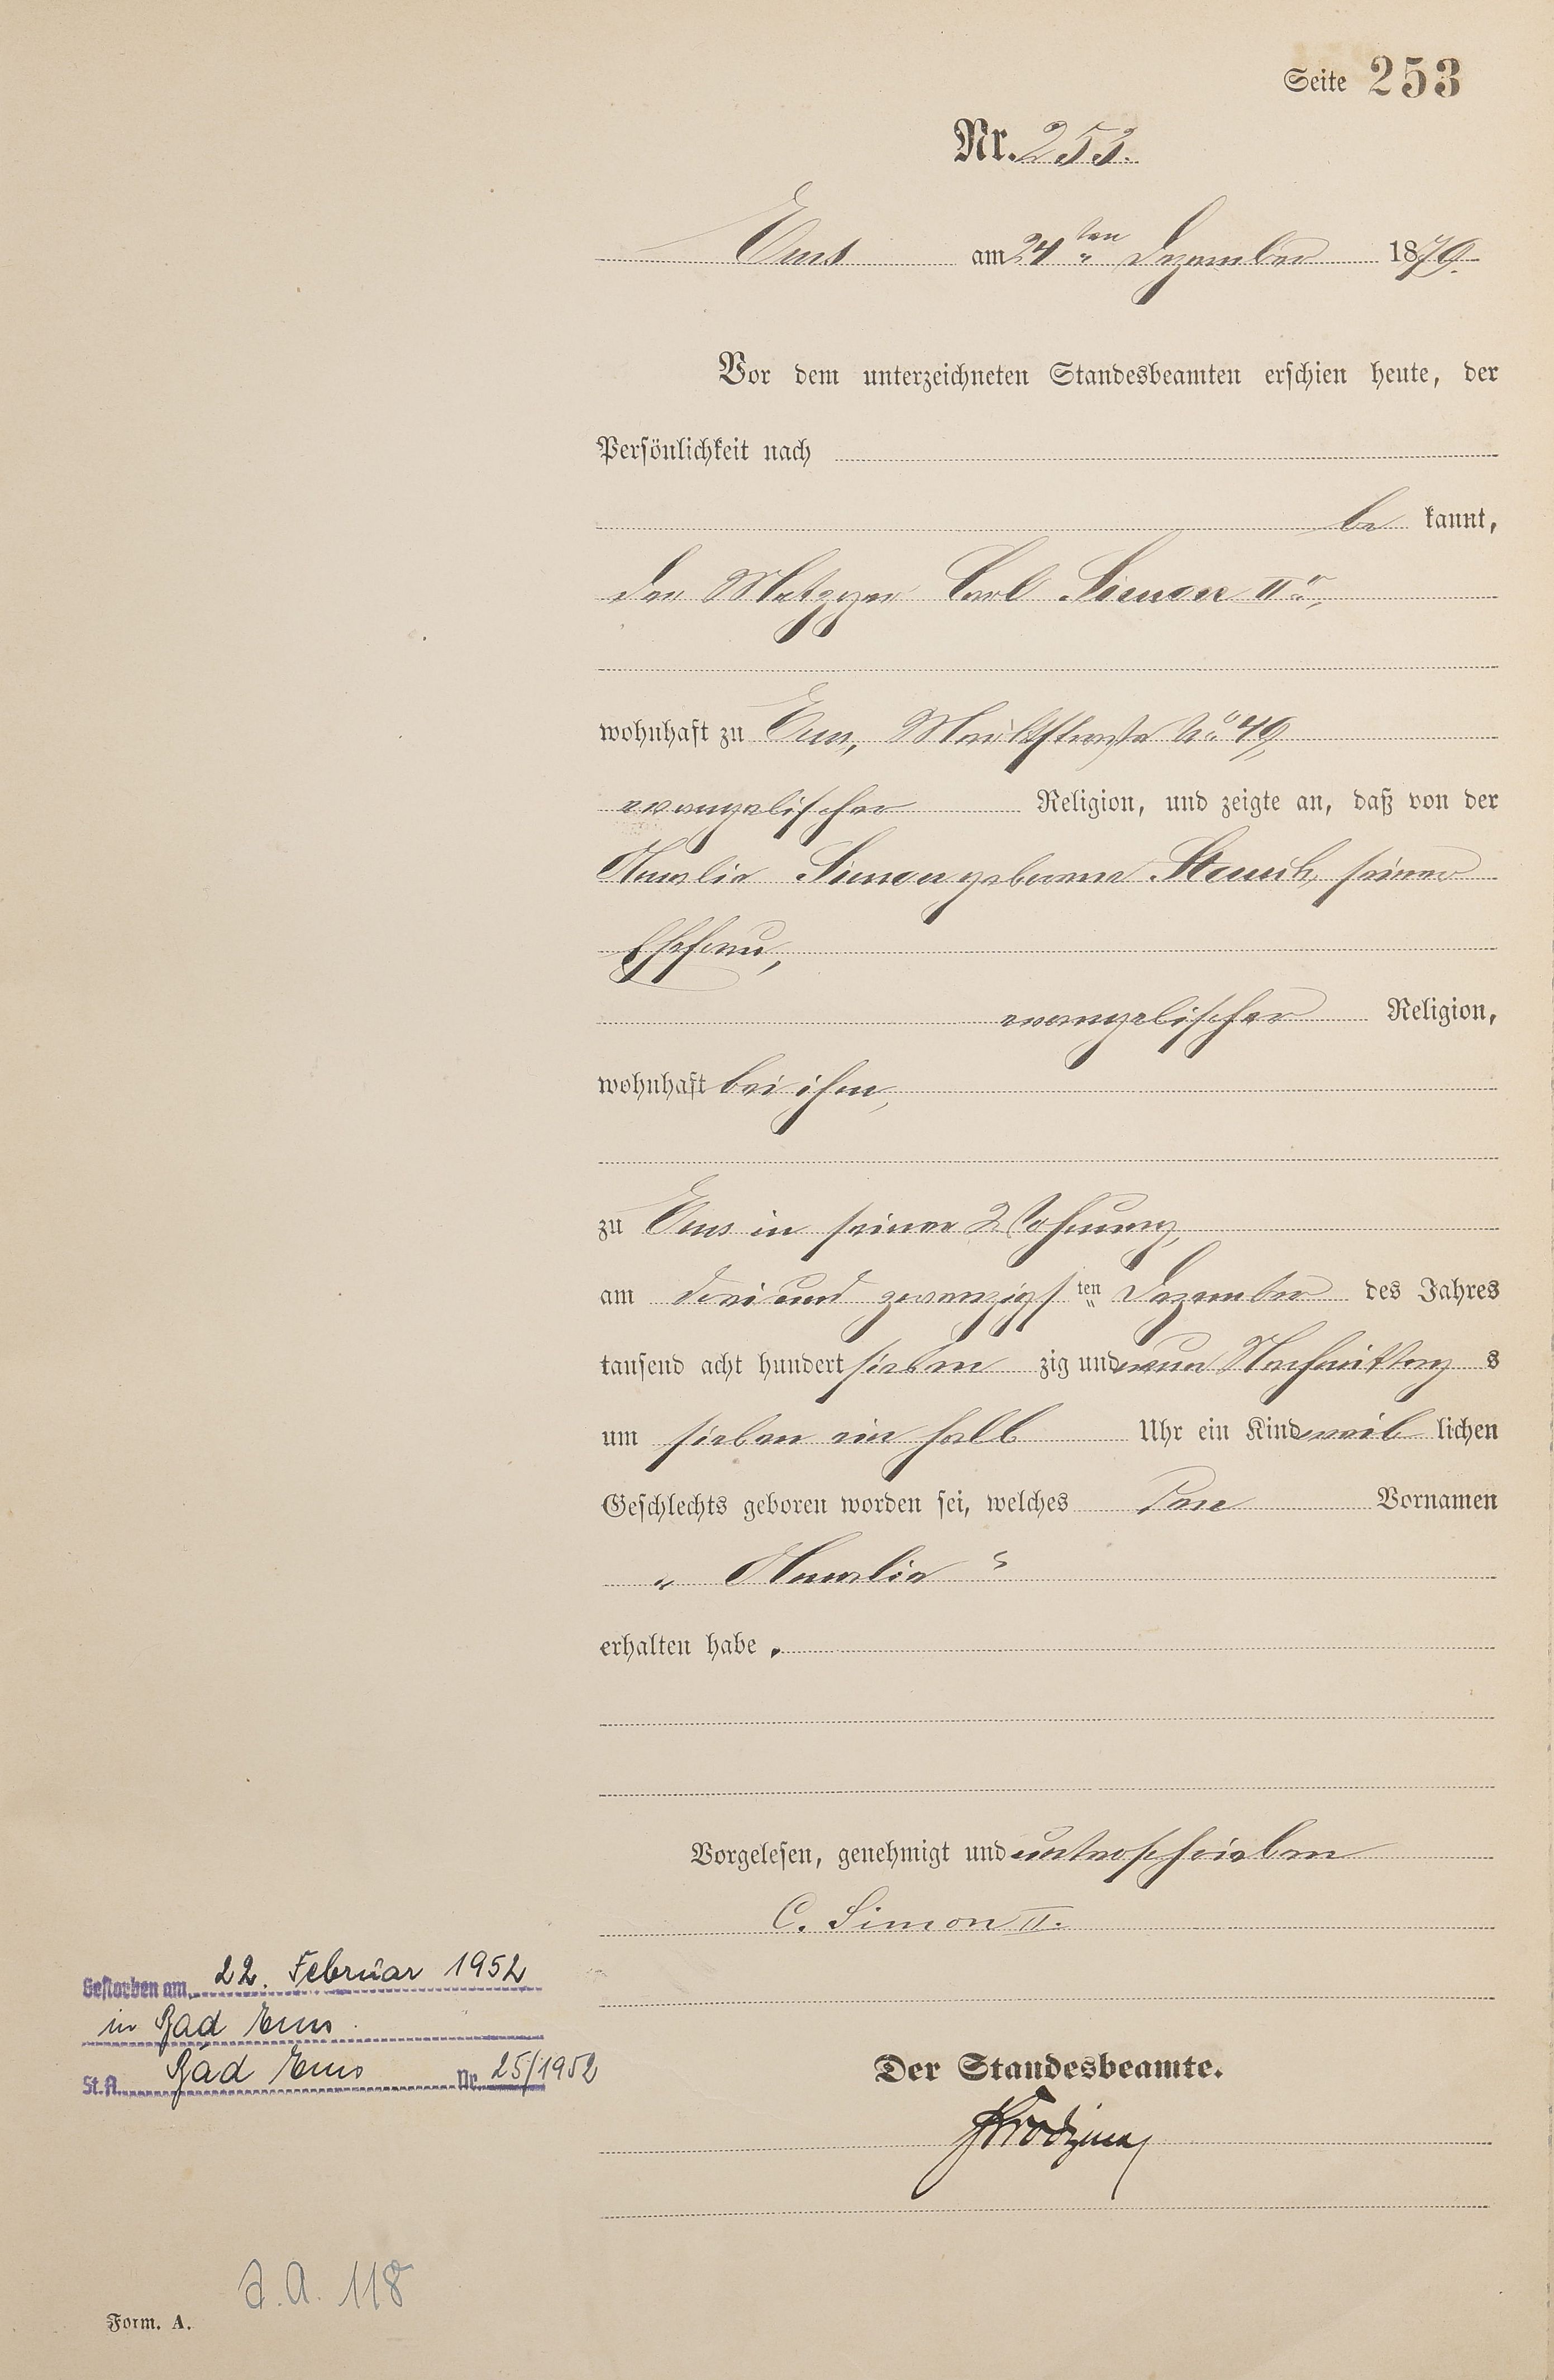 Seite 253
Nr. 253.
Ems am 24ten Dezember 1879.
Vor dem unterzeichneten Standesbeamten erschien heute, der
Persönlichkeit nach
be kannt,
der Metzger Carl Simon IIr,
wohnhaft zu Ems, Marktstraße No 49,
evangelischer Religion, und zeigte an, daß von der
Amalie Simon geborene Stauch, seiner
Ehefrau,
evangelischer Religion,
wohnhaft bei ihm,
zu Ems in seiner Wohnung,
am drei und zwanzigsten Dezember des Jahres
tausend acht hundert sieben zig und neun Nachmittag s
um sieben ein halb Uhr ein Kind weib lichen
Geschlechts geboren worden sei, welches den Vornamen
„ Amalie “
erhalten habe.
Vorgelesen, genehmigt und unterschrieben
C. Simon II.
Der Standesbeamte.
Gestorben am 22. Februar 1952
in Bad Ems.
St. A. Bad Ems Nr. 25/1952
a. A. 118
Form. A.